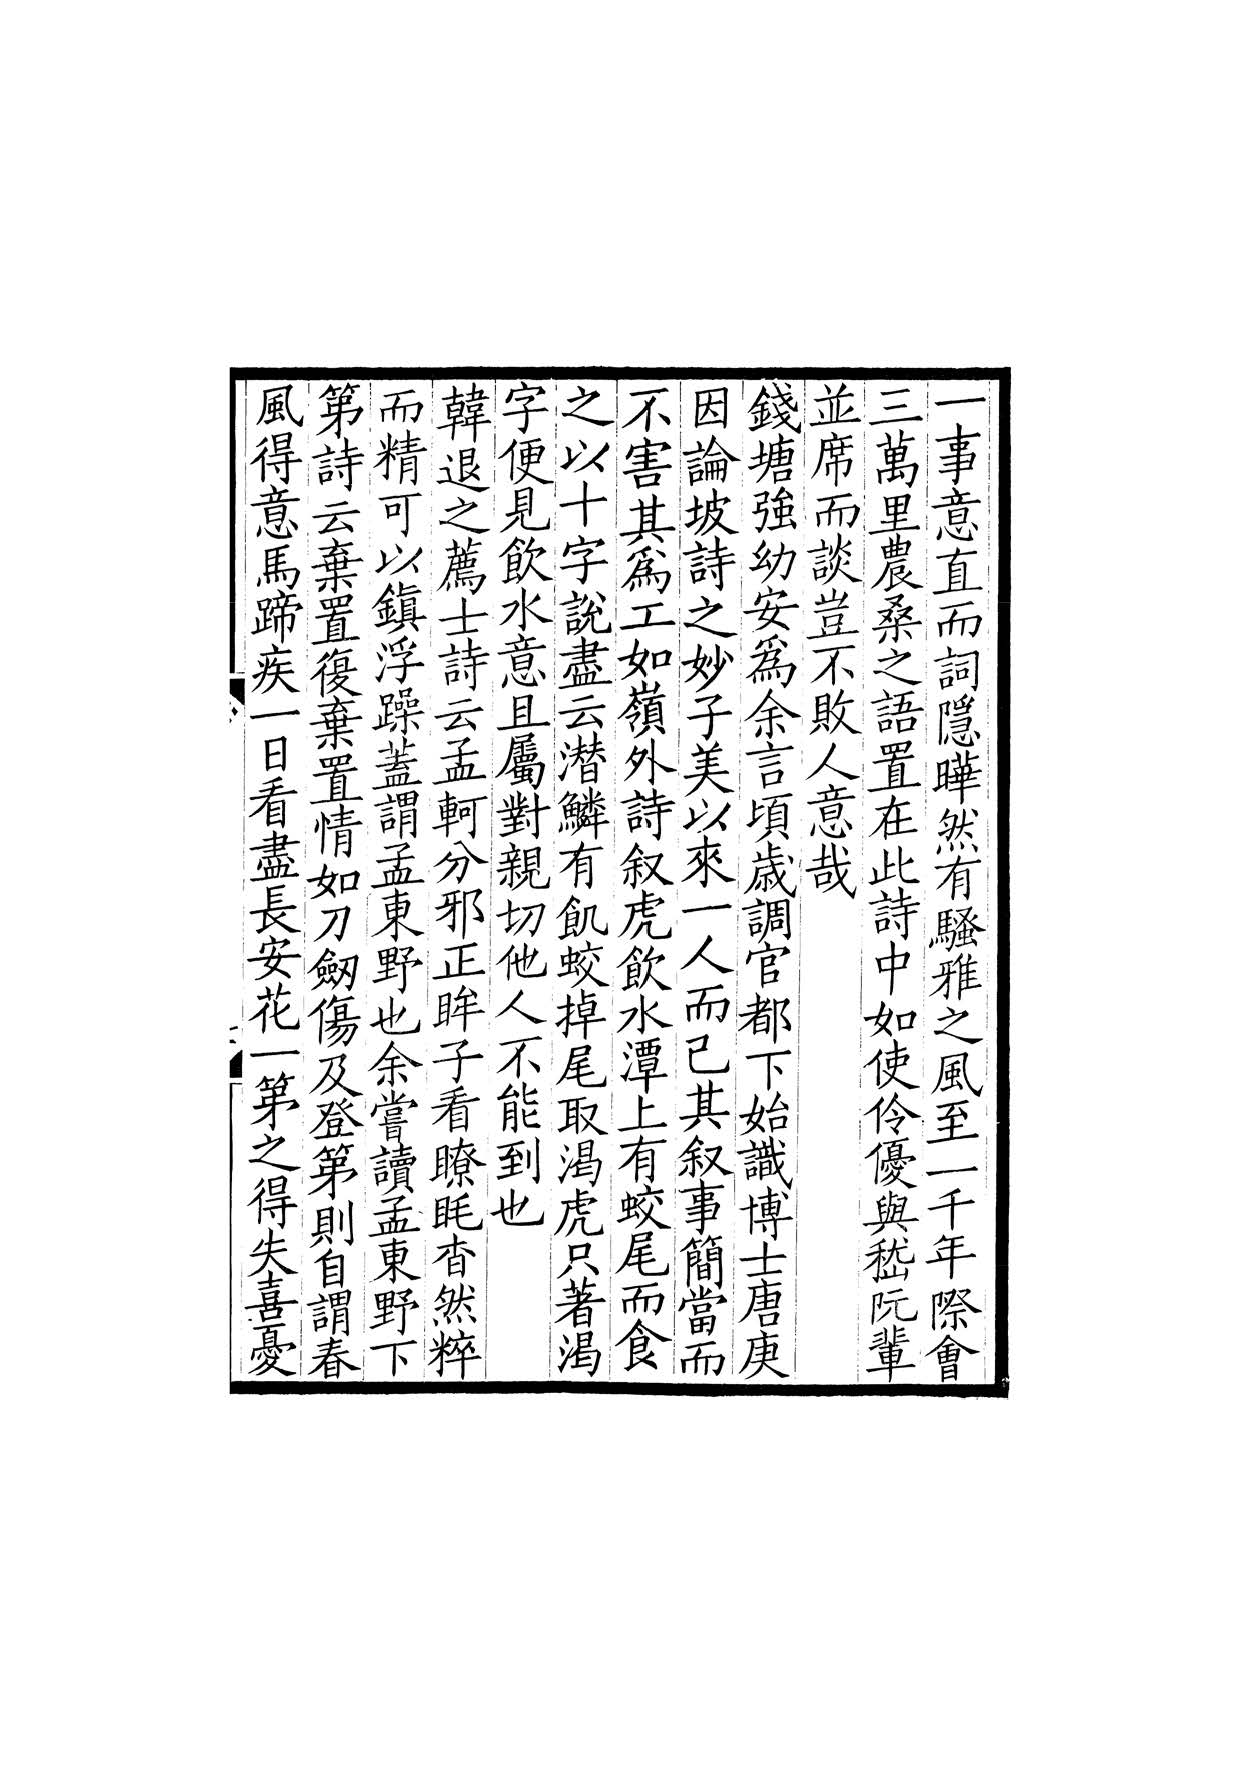 一事意直而詞隱曄然有騷雅之風至一千年際會
三萬里農桑之語置在此詩中如使伶優與嵇阮輩
並席而談豈不敗人意哉
錢塘強幼安爲余言頃歲調官都下始識博士唐庚
因論坡詩之妙子美以來一人而已其叙事簡當而
不害其爲工如嶺外詩叙虎飲水潭上有蛟尾而食
之以十字說盡云潜鱗有飢蛟掉尾取渴虎只著渴
字便見飲水意且屬對親切他人不能到也
韓退之薦士詩云孟軻分邪正眸子看瞭眊杳然粹
而精可以鎮浮躁蓋謂孟東野也余嘗讀孟東野下
第詩云棄置復棄置情如刀劒傷及登第則自謂春
風得意馬蹄疾一日看盡長安花一第之得失喜憂